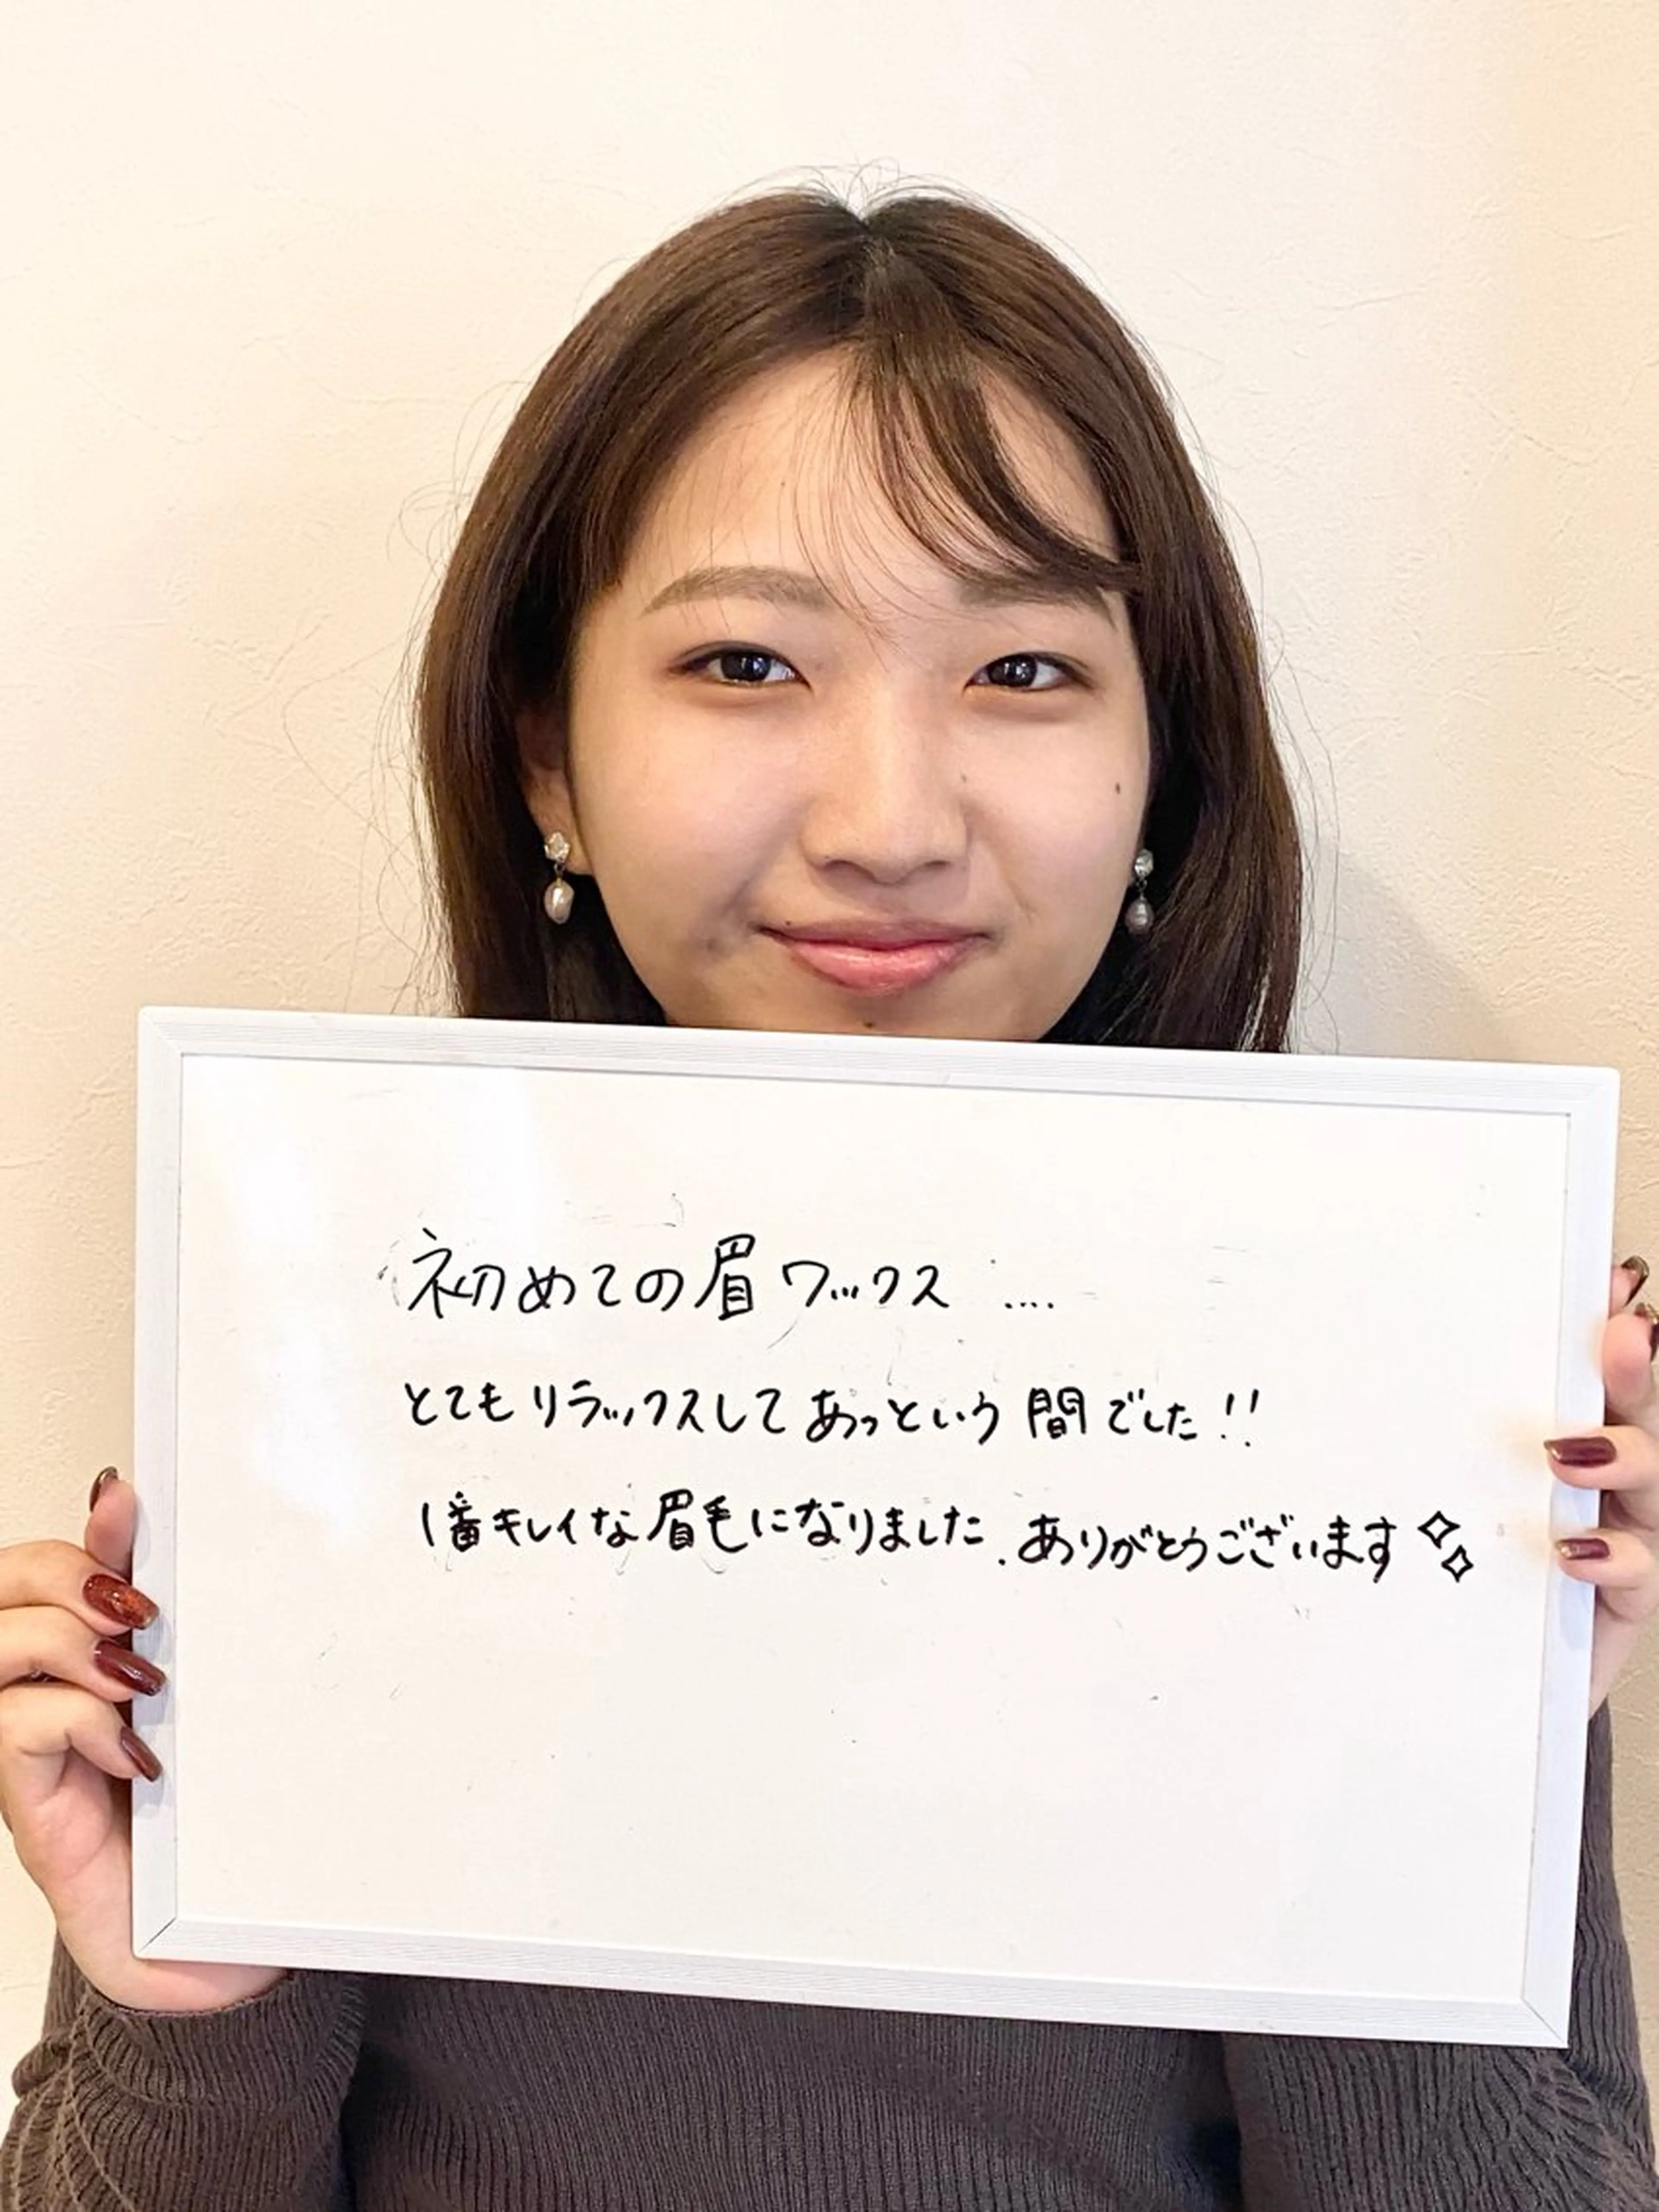 初めての眉ワックス ....
とてもリラックスしてあっという間でした!!
1番キレイな眉毛になりました.ありがとうございます✧✧